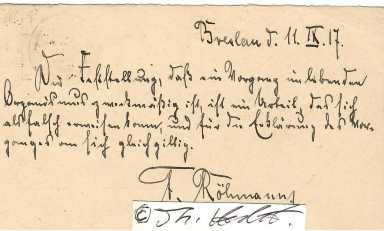 Breslau d. 11. IX. 17.
Die Feststellung, daß ein Vorgang im lebenden
Organismus zweckmäßig ist, ist ein Urteil, das sich
als falsch erweisen kann, und für die Erklärung des Vor-
ganges an sich gleichgiltig.
F. Röhmann
© Th.